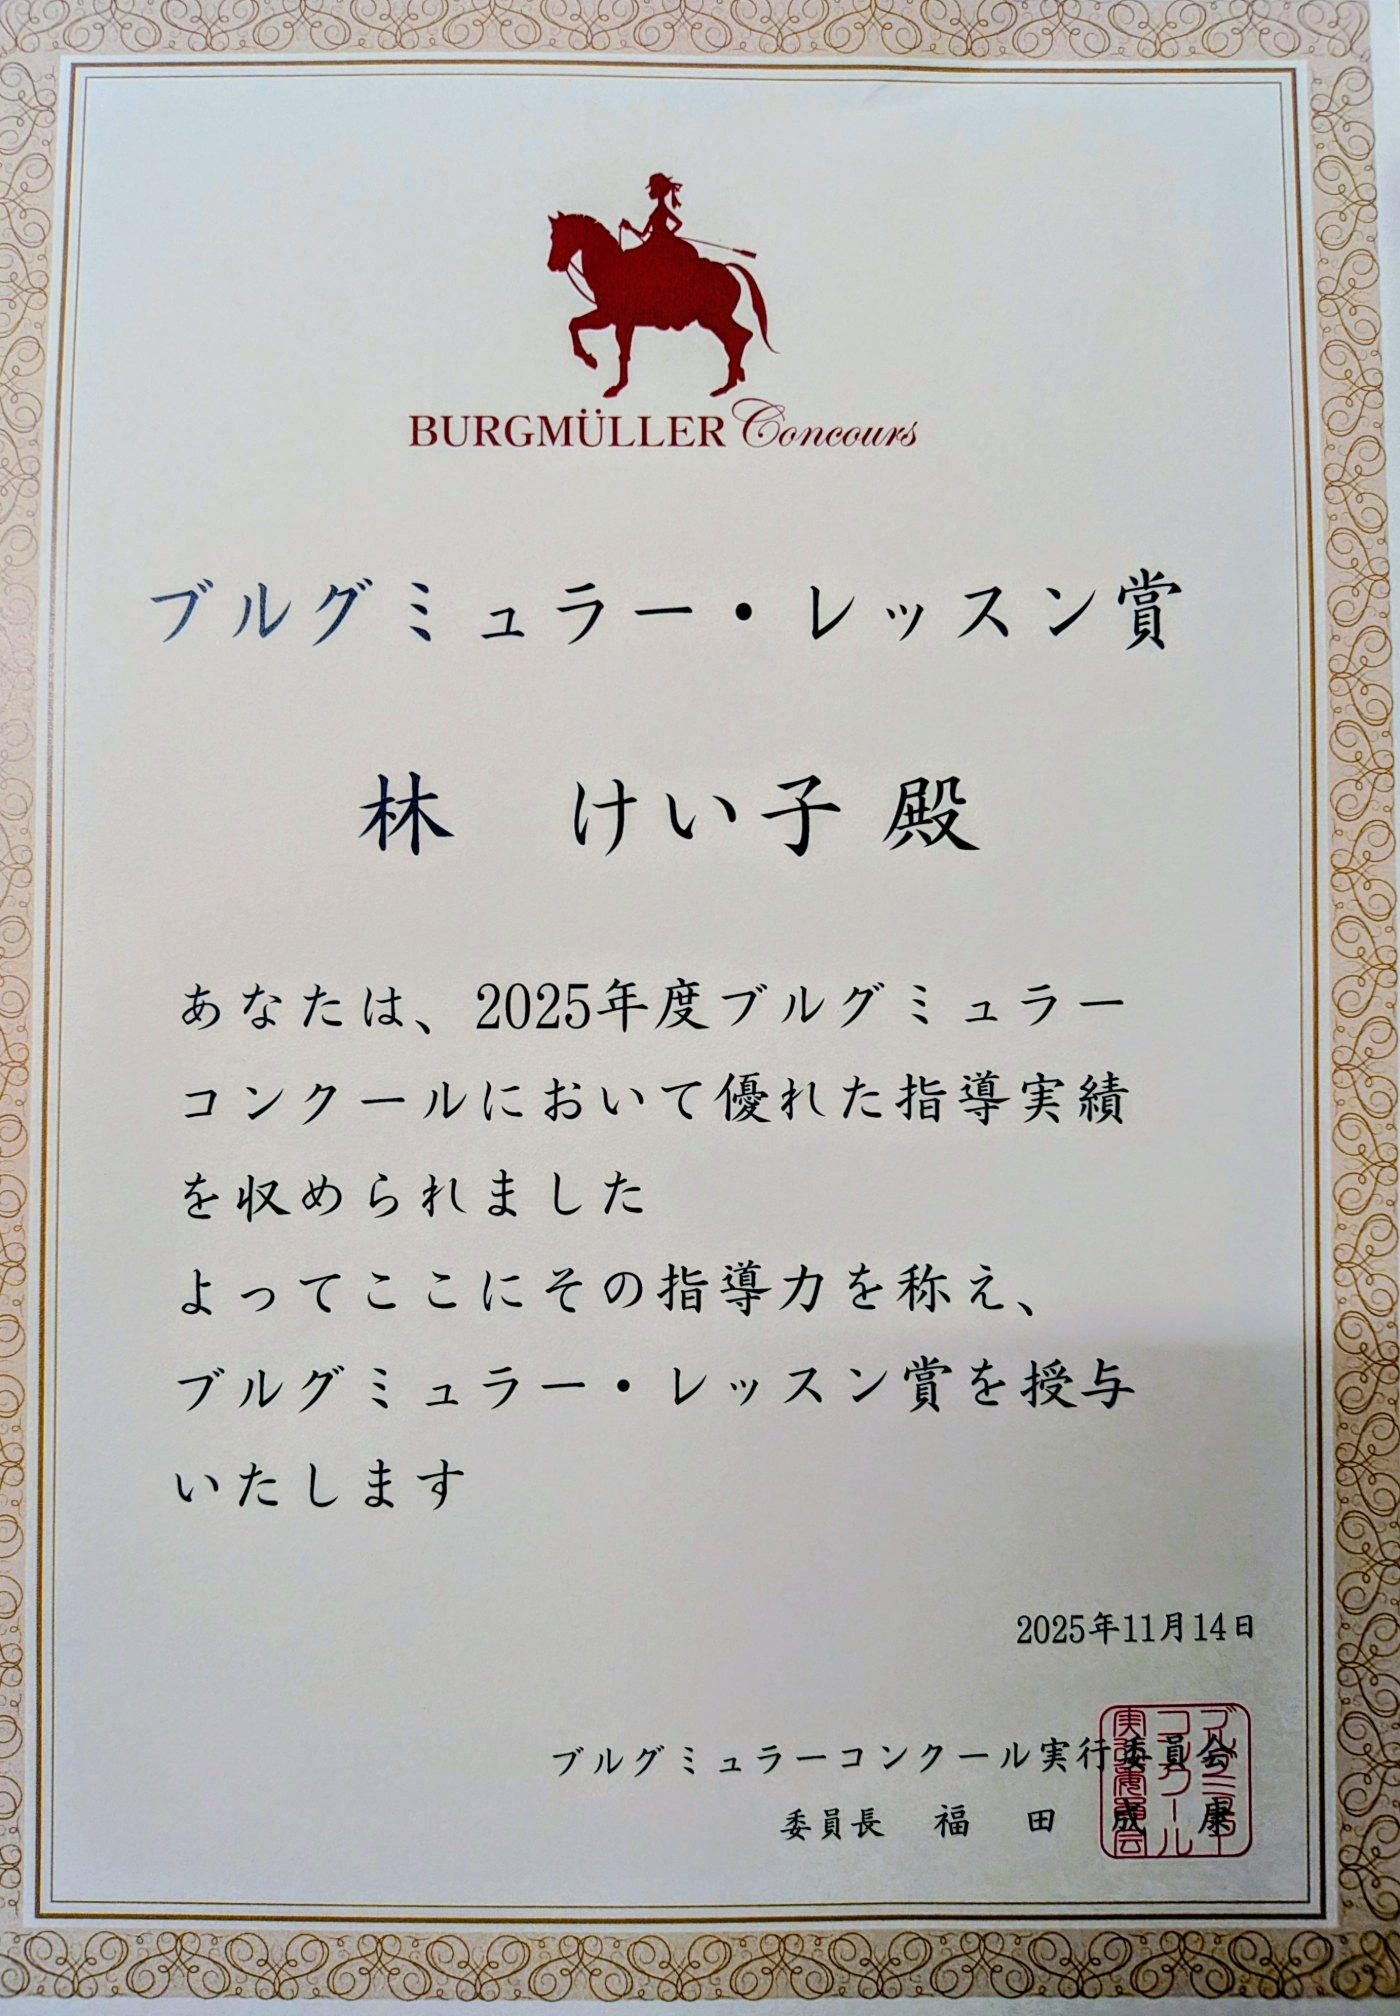 BURGMÜLLER Concours
ブルグミュラー・レッスン賞
林　けい子 殿
あなたは、2025年度ブルグミュラー
コンクールにおいて優れた指導実績
を収められました
よってここにその指導力を称え、
ブルグミュラー・レッスン賞を授与
いたします
2025年11月14日
ブルグミュラーコンクール実行委員会
委員長　福　田　成　康
ブルグミュラー
コンクール
実行委員会